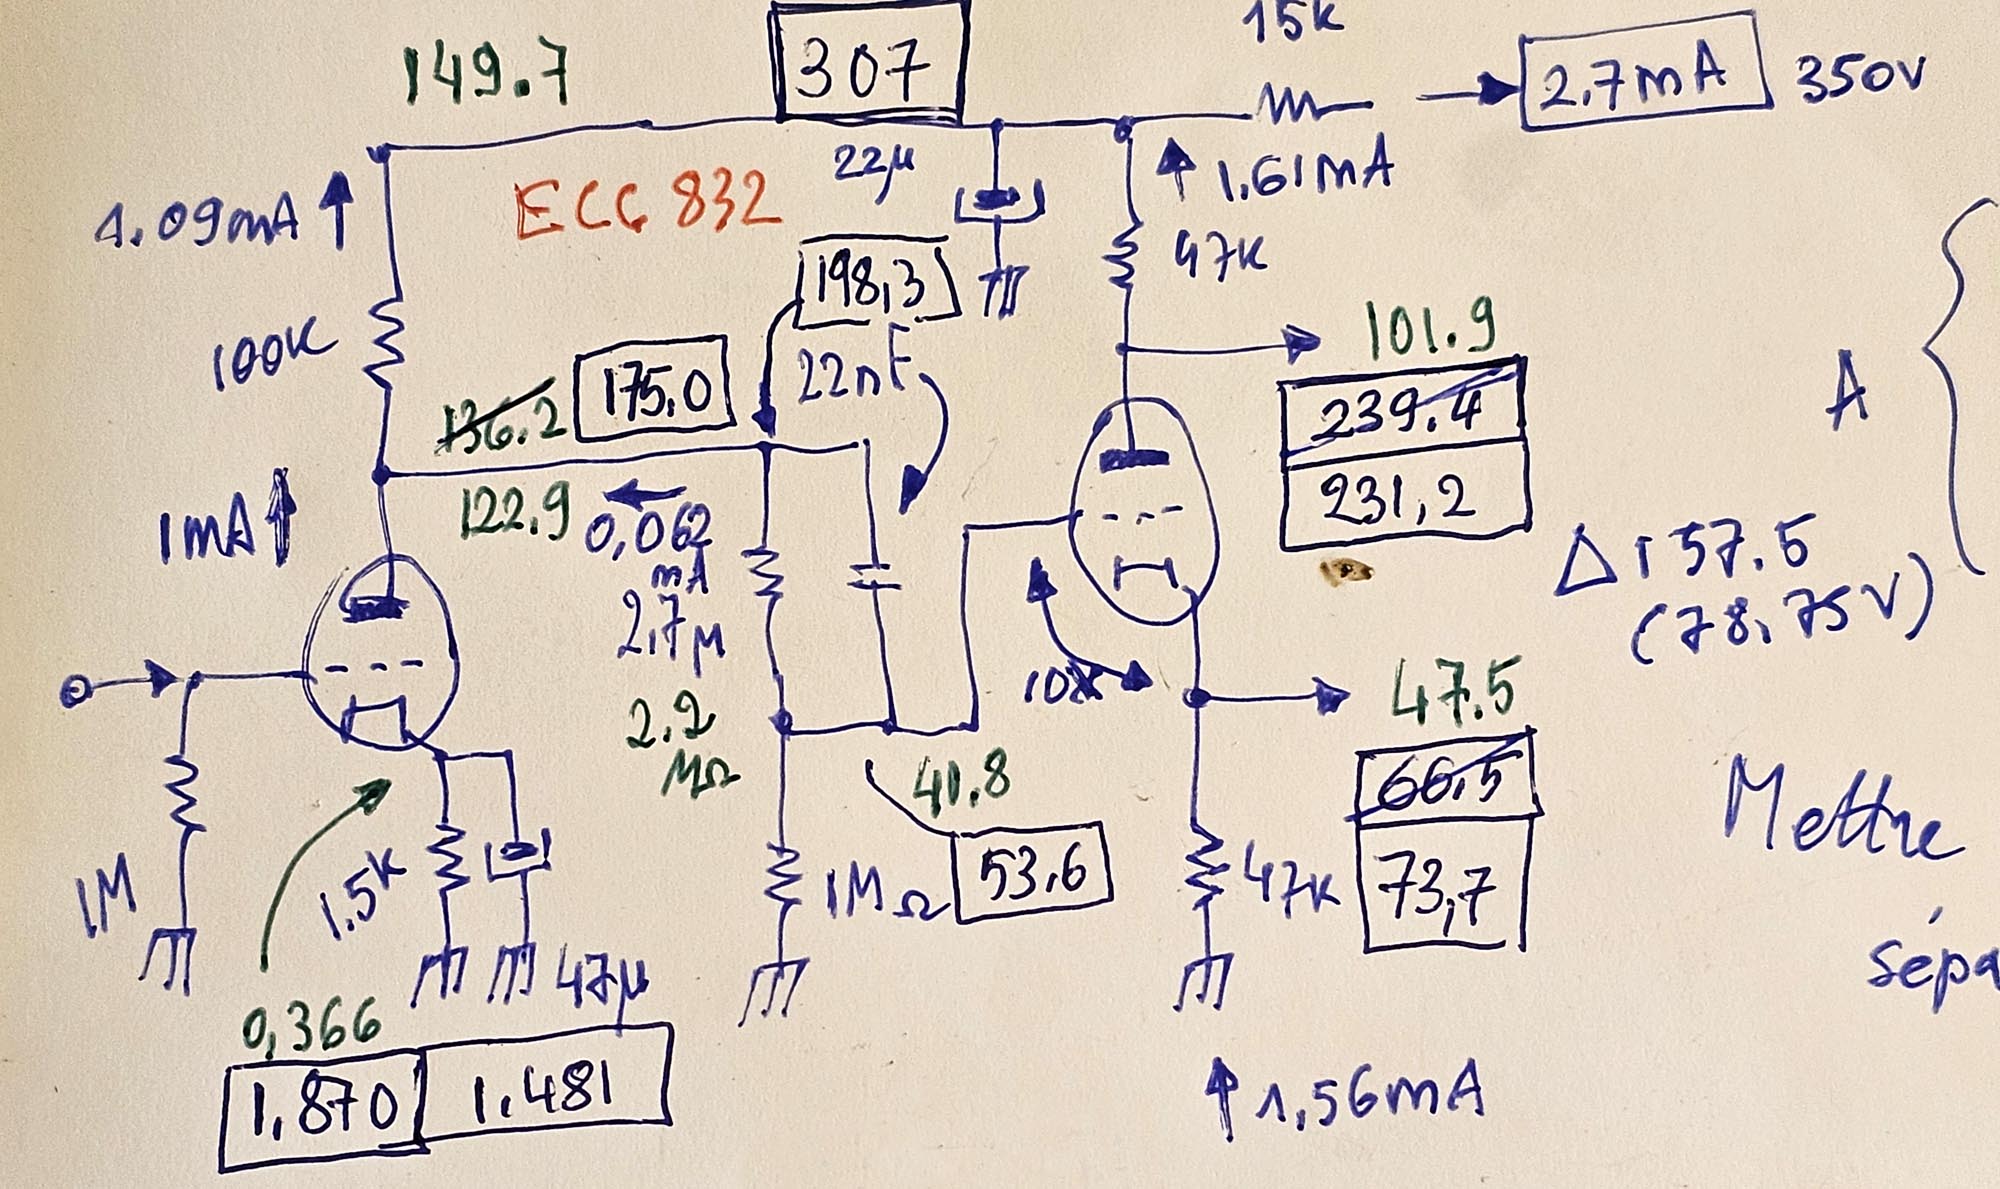 15K
149.7
307
2,7mA
350V
22µ
1.61mA
1.09mA
ECC 832
198,3
47K
100K
101.9
136.2
175,0
22nF
239.4
A
122.9
231,2
1mA
0,062
mA
Δ 157.5
(78,75V)
2,7M
10X
47.5
2.2
MΩ
41.8
66,5
Mettre
1M
1.5K
1MΩ
53,6
47K
73,7
sépa
47µ
0,366
1,870
1.481
1,56mA